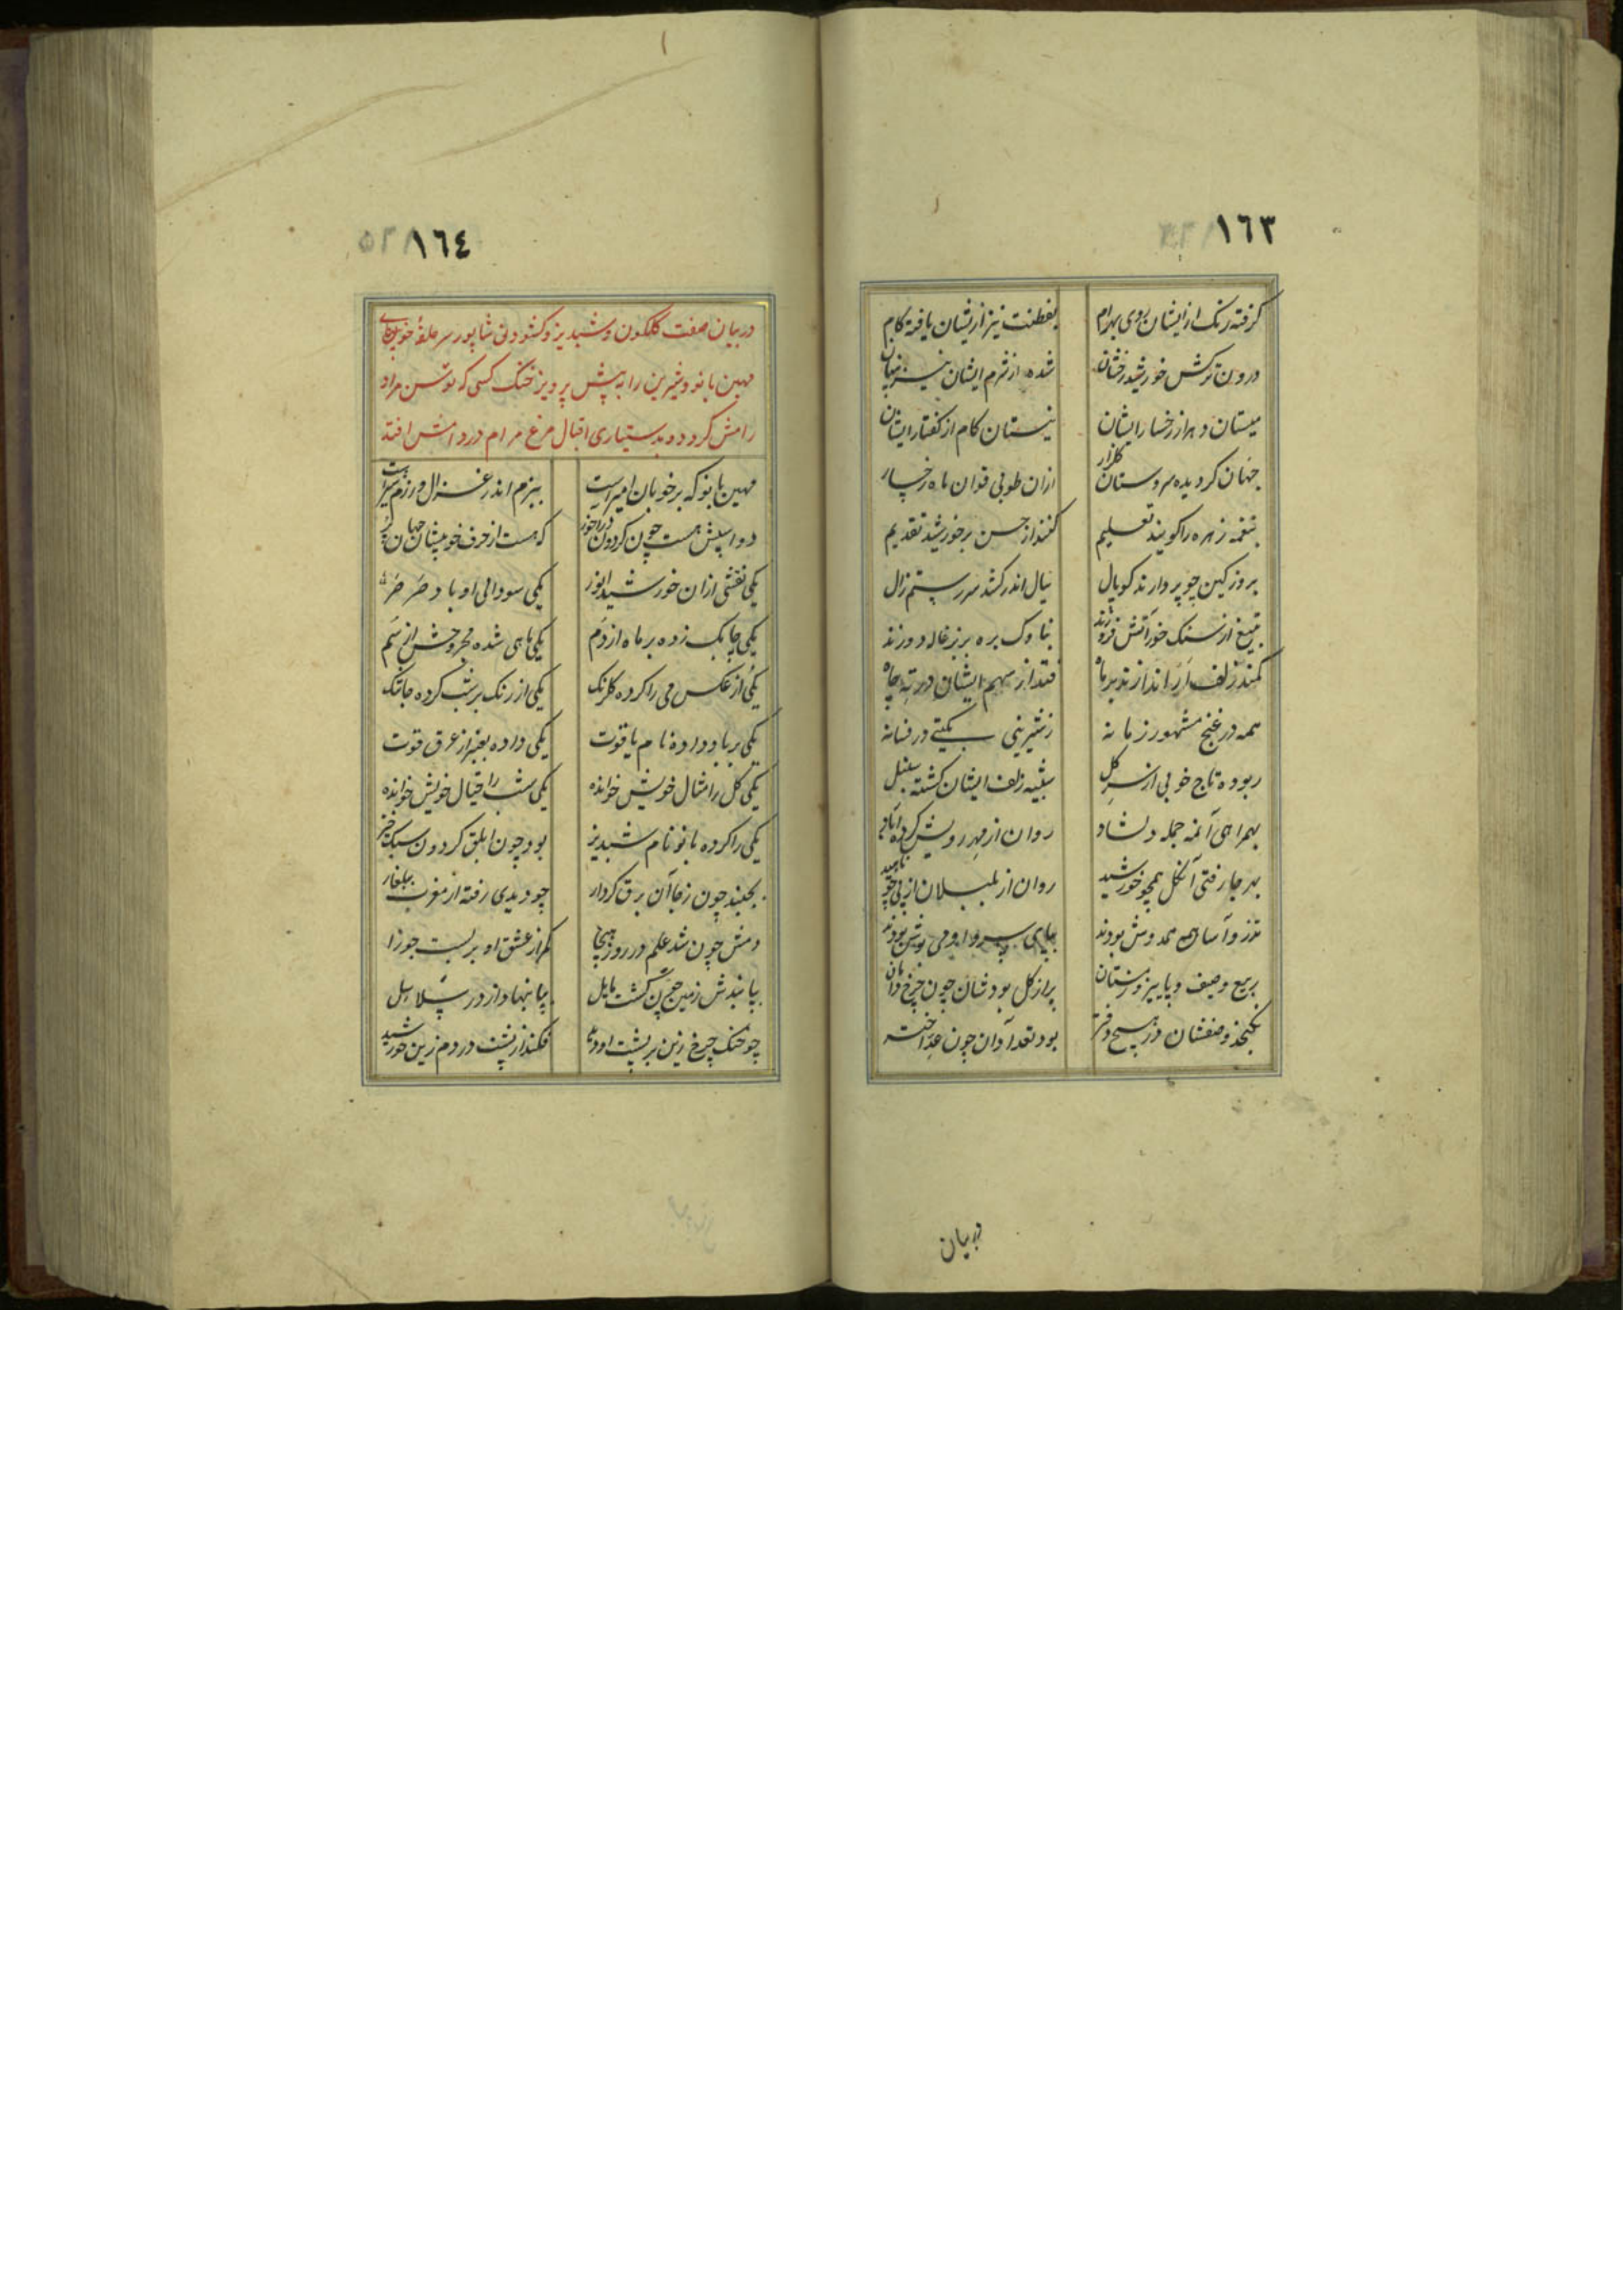 ١٦٣
گرفته رنک از ایشان روی بهرام بفطنت تیر ازیشان یافته کام
درون ترکش خورشید رخشان شده از شرم ایشان نیز پنهان
میستان دهر از رخسار ایشان نیستان کام از کفتار ایشان
جهان کردیده سروستان کلزار ازان طوبی قدان ماه رخسار
بنغمه زهره را کویند تعلیم کنند از حسن برخورشید تقدیم
بروز کین چو بردارند کوپال بیال اندر کشد سر رستم زال
بتیغ از سنک خور آتش فروزند بناوک بره بر بزغاله دوزند
کمند زلف ار اندازند بر ماه فتد از سهم ایشان در ته چاه
همه در غنج مشهور زمانه ز شیرینی بکیتی در فسانه
ربوده تاج خوبی از سر کل شبیه زلف ایشان کشته سنبل
بهمراهی آنمه جمله دلشاد روان از مهر رویش کرده آباد
بهر جا رفتی آنکل همچو خورشید روان از بلبلان از پی چو ناهید
تذرو آسا همدوش بودند بپای سرو
ربیع و صیف و پاییز و زمستان پر از کل بودشان چون چرخ دامان
نکنجد وصفشان در هیچ دفتر بود تعداد آن چون عد اختر
در بیان
١٦٤
در بیان صفت کلکون و شبدیز و کشودن شاپور سر حلقهٔ خوبیهای
مهین بانو و شیرین را به پیش پرویز خنک کسی که توسن مراد
رامش کردد و بدستیاری اقبال مرغ مرام در دامش افتد
مهین بانو که بر خوبان امیر است ببزم اندر غزال و رزم شیر است
دو اسپش هست چون کردون در آخور که هست از حرف خوبیشان جهان پر
یکی نقشی ازان خورشید انور یکی سودائی او باد صرصر
یکی چابک زده بر ماه از دم یکی ماهی شده مجروحش از سم
یکی از عکس می را کرده کلرنک یکی از رنک بر شب کرده جا تنک
یکی بر باد داده نام یاقوت یکی داده بعنبر از عرق قوت
یکی کل را مثال خویش خوانده یکی شب را خیال خویش خوانده
یکی را کرده بانو نام شبدیز بود چون ابلق کردون سبک خیز
بجنبد چون ز جا آن برق کردار چو دیدی رفته از مغرب ببلغار
دمش چون شد علم در روز هیجا کمر از عشق او بربست جوزا
بپابندش زمین چون کشت مایل بپا بنهاد از در سلاسل
چو خنک چرخ زین بر پشت او دید فکند از پشت در دم زین خورشید